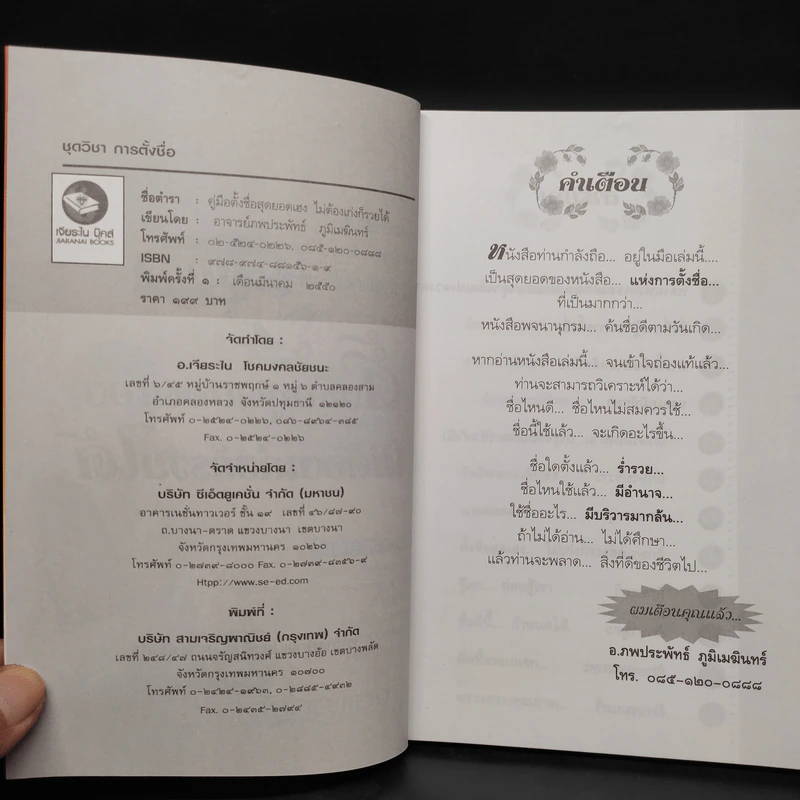 ชุดวิชา การตั้งชื่อ
เจียระไน บุ๊คส์
JIARANAI BOOKS
ชื่อตำรา : คู่มือตั้งชื่อสุดยอดเฮง ไม่ต้องเก่งก็รวยได้
เขียนโดย : อาจารย์ภพประพัทธ์ ภูมิเมฆินทร์
โทรศัพท์ : ๐๒-๕๒๔-๐๒๒๖, ๐๘๕-๑๒๐-๐๘๘๘
ISBN : ๙๗๘-๙๗๔-๘๘๑๕๖-๑-๙
พิมพ์ครั้งที่ ๑ : เดือนมีนาคม ๒๕๕๐
ราคา ๑๙๙ บาท
จัดทำโดย :
อ.เจียระไน โชคมงคลชัยชนะ
เลขที่ ๖/๔๕ หมู่บ้านราชพฤกษ์ ๑ หมู่ ๖ ตำบลคลองสาม
อำเภอคลองหลวง จังหวัดปทุมธานี ๑๒๑๒๐
โทรศัพท์ ๐-๒๕๒๔-๐๒๒๖, ๐๘๖-๘๙๖๔-๓๘๕
Fax. ๐-๒๕๒๔-๐๒๒๖
จัดจำหน่ายโดย :
บริษัท ซีเอ็ดยูเคชั่น จำกัด (มหาชน)
อาคารเนชั่นทาวเวอร์ ชั้น ๑๙ เลขที่ ๔๖/๘๗-๙๐
ถ.บางนา-ตราด แขวงบางนา เขตบางนา
จังหวัดกรุงเทพมหานคร ๑๐๒๖๐
โทรศัพท์ ๐-๒๗๓๙-๘๐๐๐ Fax. ๐-๒๗๓๙-๘๓๕๖-๙
Htpp://www.se-ed.com
พิมพ์ที่ :
บริษัท สามเจริญพาณิชย์ (กรุงเทพ) จำกัด
เลขที่ ๒๔๘/๔๗ ถนนจรัญสนิทวงศ์ แขวงบางอ้อ เขตบางพลัด
จังหวัดกรุงเทพมหานคร ๑๐๗๐๐
โทรศัพท์ ๐-๒๔๒๔-๑๙๖๓, ๐-๒๘๘๕-๔๙๓๒
Fax. ๐-๒๔๓๕-๒๗๙๔
คำเตือน
หนังสือท่านกำลังถือ... อยู่ในมือเล่มนี้....
เป็นสุดยอดของหนังสือ... แห่งการตั้งชื่อ...
ที่เป็นมากกว่า...
หนังสือพจนานุกรม... ค้นชื่อดีตามวันเกิด...
หากอ่านหนังสือเล่มนี้... จนเข้าใจถ่องแท้แล้ว...
ท่านจะสามารถวิเคราะห์ได้ว่า...
ชื่อไหนดี... ชื่อไหนไม่สมควรใช้...
ชื่อนี้ใช้แล้ว... จะเกิดอะไรขึ้น...
ชื่อใดตั้งแล้ว... ร่ำรวย...
ชื่อไหนใช้แล้ว... มีอำนาจ...
ใช้ชื่ออะไร... มีบริวารมากล้น...
ถ้าไม่ได้อ่าน... ไม่ได้ศึกษา...
แล้วท่านจะพลาด... สิ่งที่ดีของชีวิตไป...
ผมเตือนคุณแล้ว...
อ.ภพประพัทธ์ ภูมิเมฆินทร์
โทร. ๐๘๕-๑๒๐-๐๘๘๘